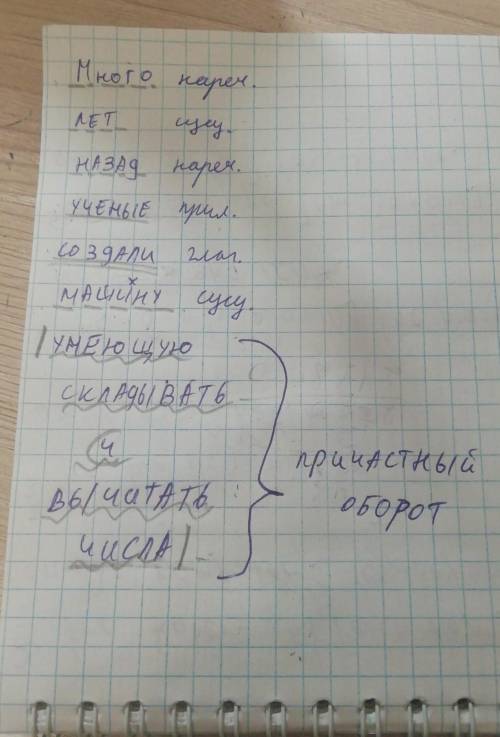 Много нареч.
ЛЕТ сущ.
НАЗАД нареч.
УЧЕНЫЕ прил.
СОЗДАЛИ глаг.
МАШИНУ сущ.
|УМЕЮЩУЮ
СКЛАДЫВАТЬ
И
ВЫЧИТАТЬ
ЧИСЛА|.
ПРИЧАСТНЫЙ
ОБОРОТ
х